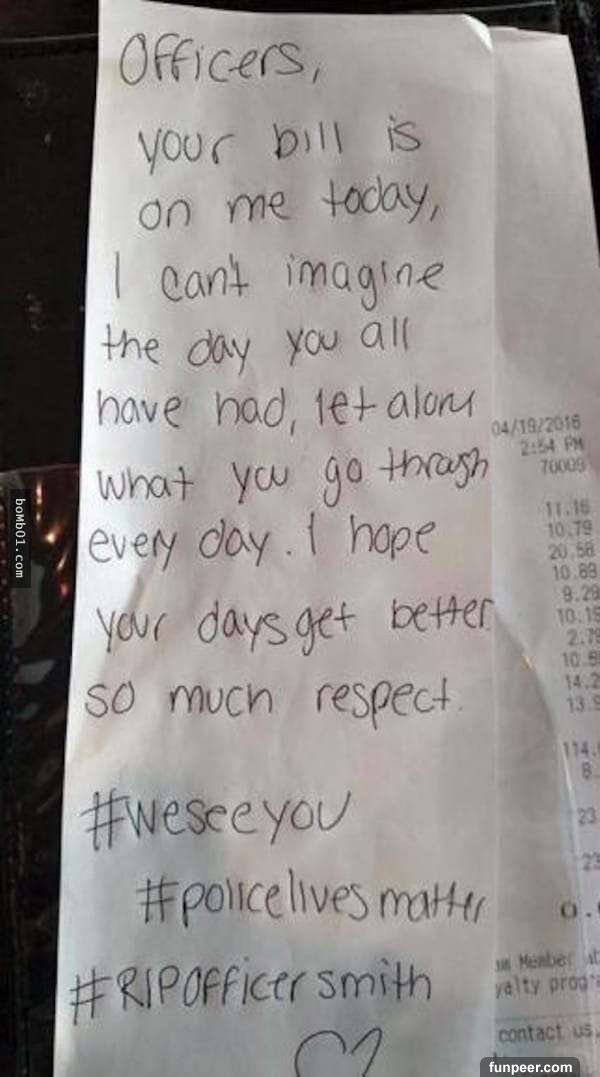 Officers,
your bill is
on me today,
I can't imagine
the day you all
have had, let alone
what you go through
every day. I hope
your days get better
so much respect.
#weseeyou
#policelivesmatter
#RIPOfficersmith
04/19/2016
2:54 PM
70009
11.16
10.79
20.58
10.89
9.29
10.19
2.79
14.2
13.9
114.
8.
23
23
0.
Member
contact us.
boMb01.com
funpeer.com